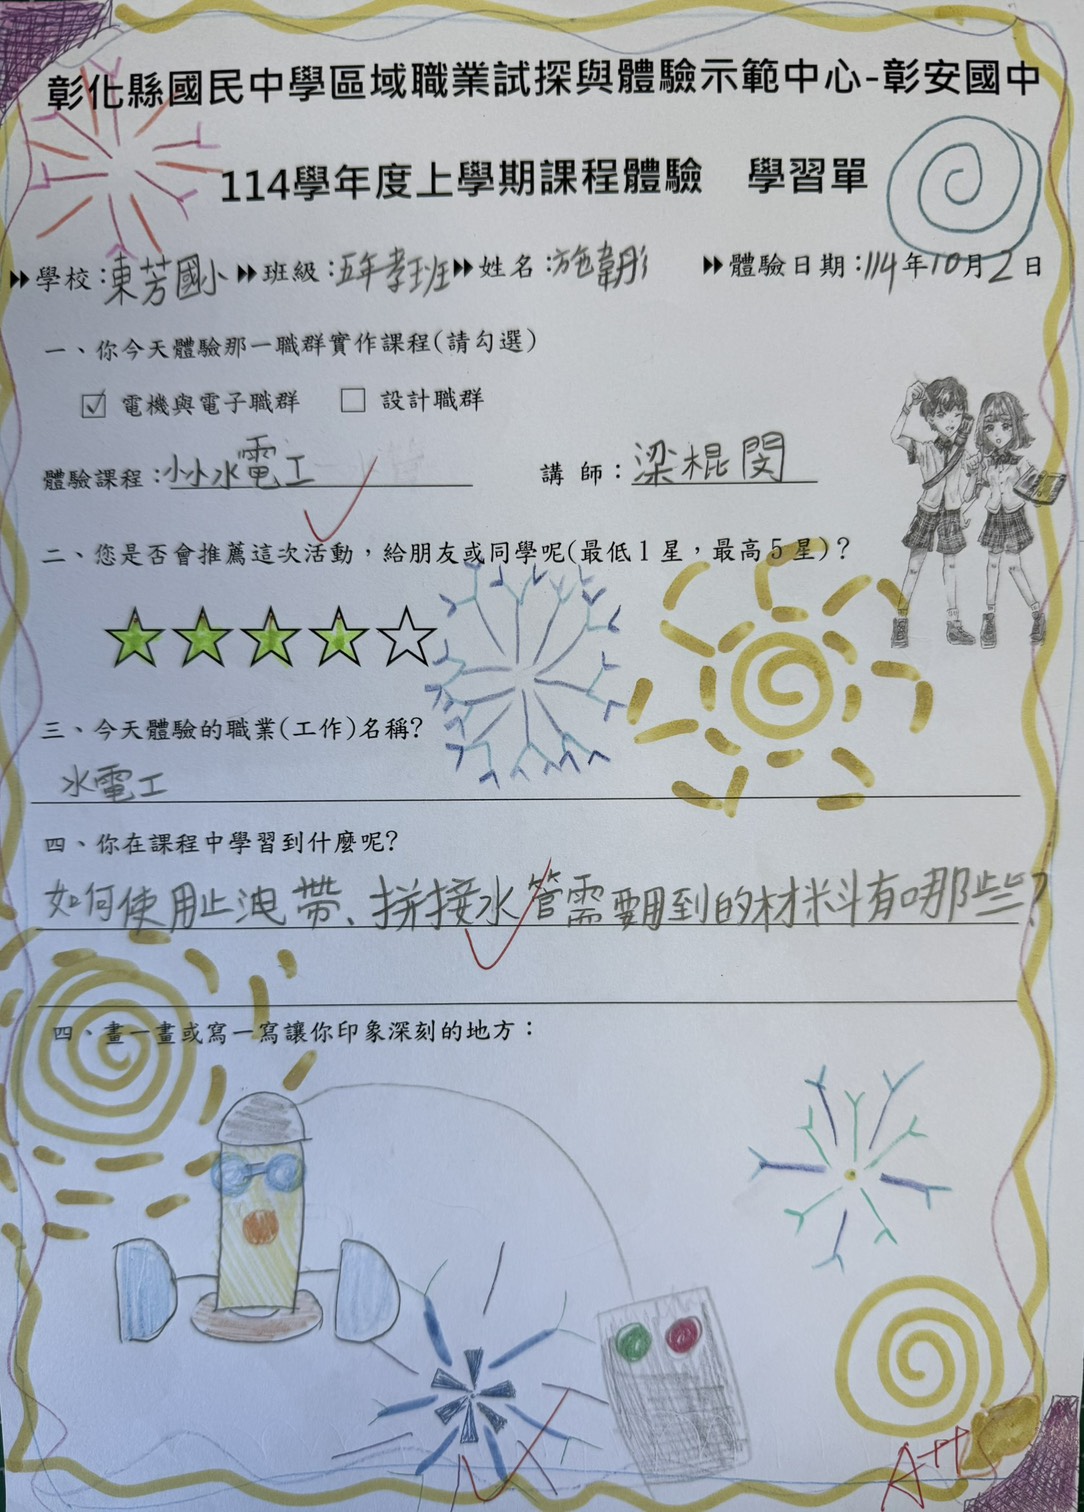 彰化縣國民中學區域職業試探與體驗示範中心-彰安國中
114學年度上學期課程體驗 學習單
學校:東芳國小 班級:五年孝班 姓名:施韋彤 體驗日期:114年10月2日
一、你今天體驗那一職群實作課程(請勾選)
☑ 電機與電子職群 □ 設計職群
體驗課程:小小水電工 講 師:梁棍閔
二、您是否會推薦這次活動,給朋友或同學呢(最低1星,最高5星)?
三、今天體驗的職業(工作)名稱?
水電工
四、你在課程中學習到什麼呢?
如何使用止洩帶、拼接水管需要用到的材料有哪些?
四、畫一畫或寫一寫讓你印象深刻的地方: